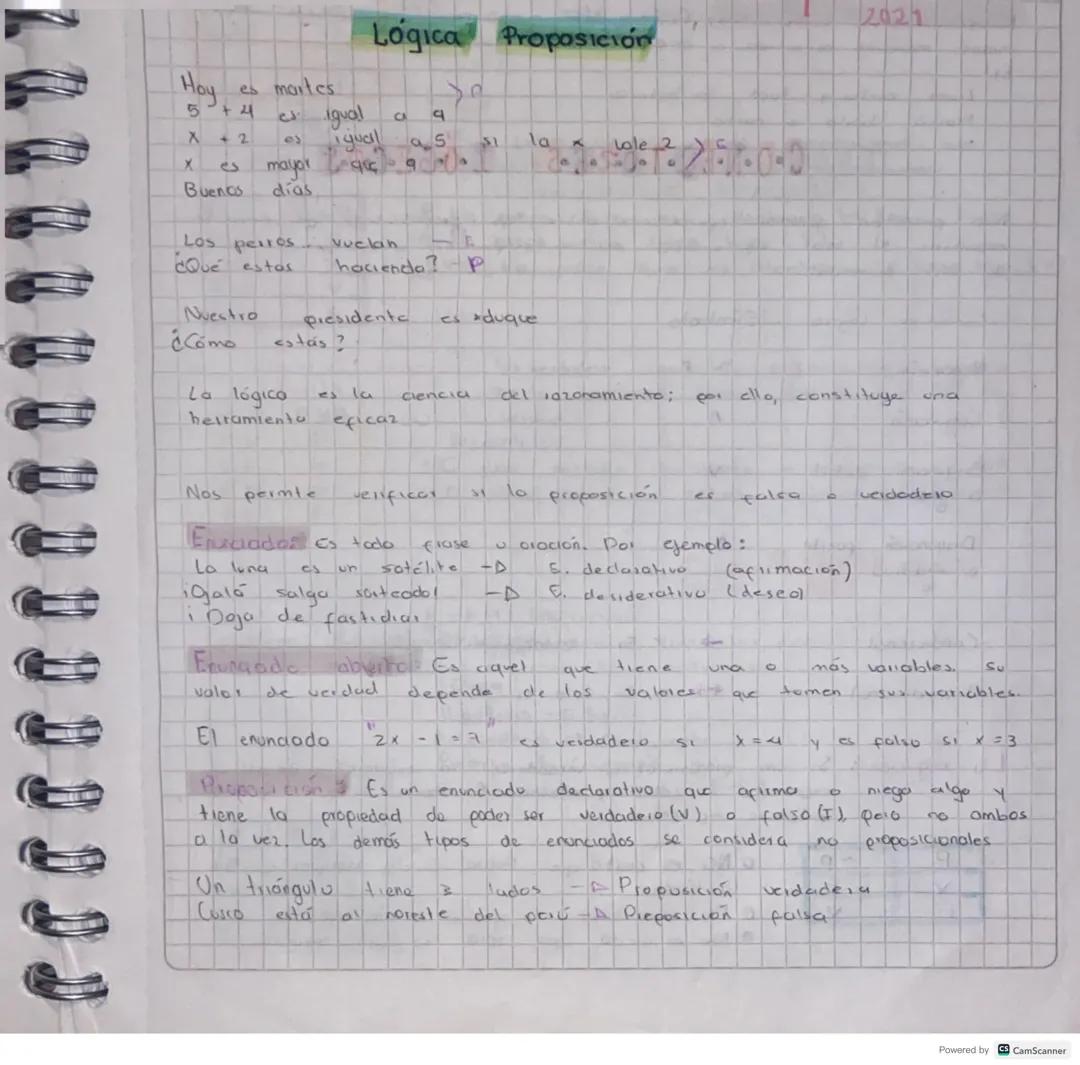 2021
Lógica Proposición
Hoy es martes
5 + 4 es igual a 9
x + 2 es igual a 5 si la x vale 2
x es mayor que 9
Buenos días
Los perros vuelan
¿Qué estas haciendo? P
Nuestro presidente es duque
¿Cómo estás?
La lógica es la ciencia del razonamiento; por ello, constituye una
herramienta eficaz
Nos permte verificar si la proposición es falsa o verdadero
Enunciado: Es todo frase u oración. Por ejemplo:
La luna es un satélite → E. declarativo (afirmación)
¡Ojalá salga sorteado! → E. desiderativo (deseo)
¡Deja de fastidiar
Enunciado abierto: Es aquel que tiene una o más variables. Su
valor de verdad depende de los valores que tomen sus variables.
El enunciado "2x - 1 = 7" es verdadero si x = 4 y es falso si x = 3
Proposición: Es un enunciado declarativo que afirma o niega algo y
tiene la propiedad de poder ser verdadero (V) o falso (F), pero no ambos
a la vez. Los demás tipos de enunciados se considera no proposicionales
Un triángulo tiene 3 lados → Proposición verdadera
Cusco está al noreste del perú → Preposición falsa
Powered by CS CamScanner